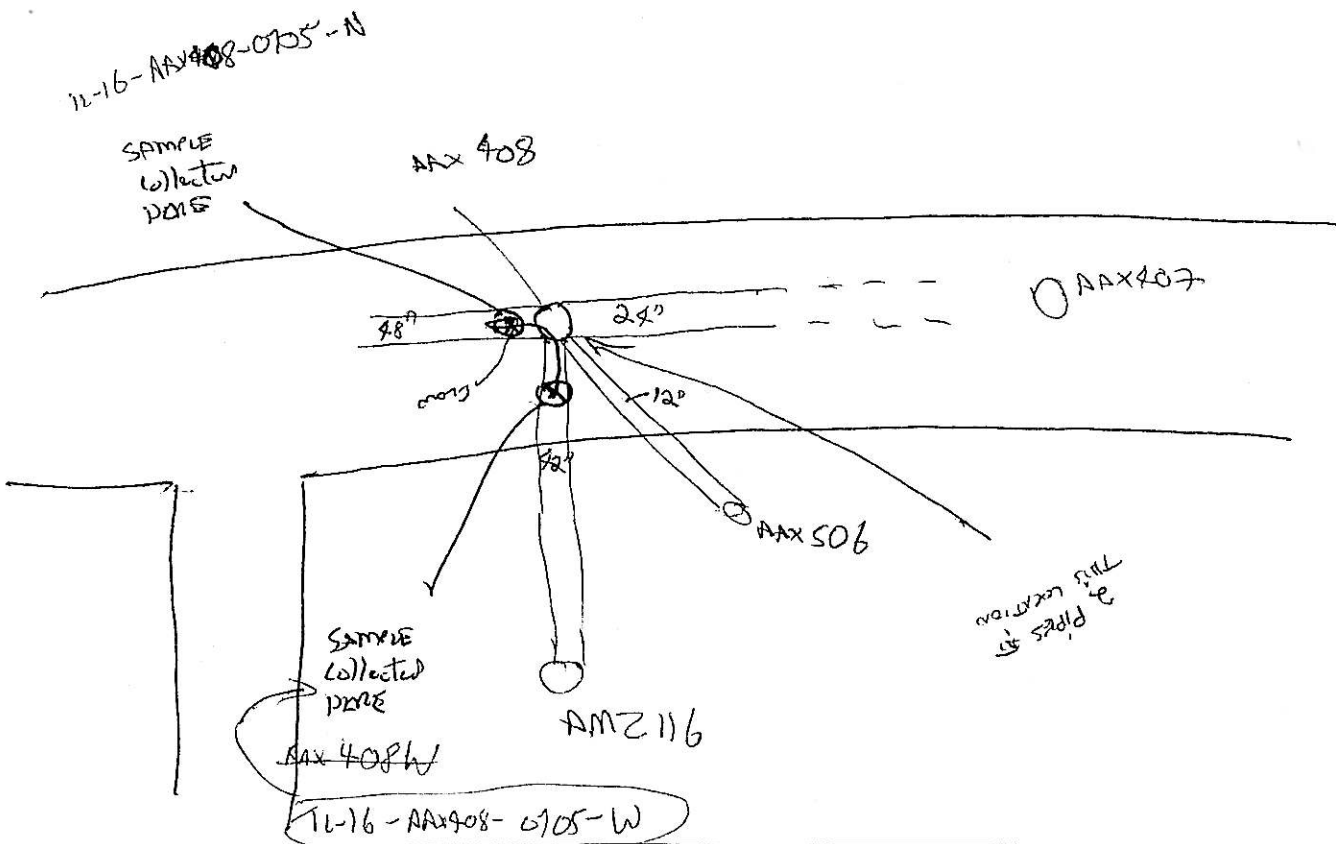 12-16-AAX408-0705-N
SAMPLE
collected
AAX 408
48"
24"
AAX407
FLOW
12"
42"
AAX 506
2 PIPES IN
THIS LOCATION
SAMPLE
collected
AMZ 116
AAX 408W
12-16-AAX408-0705-W